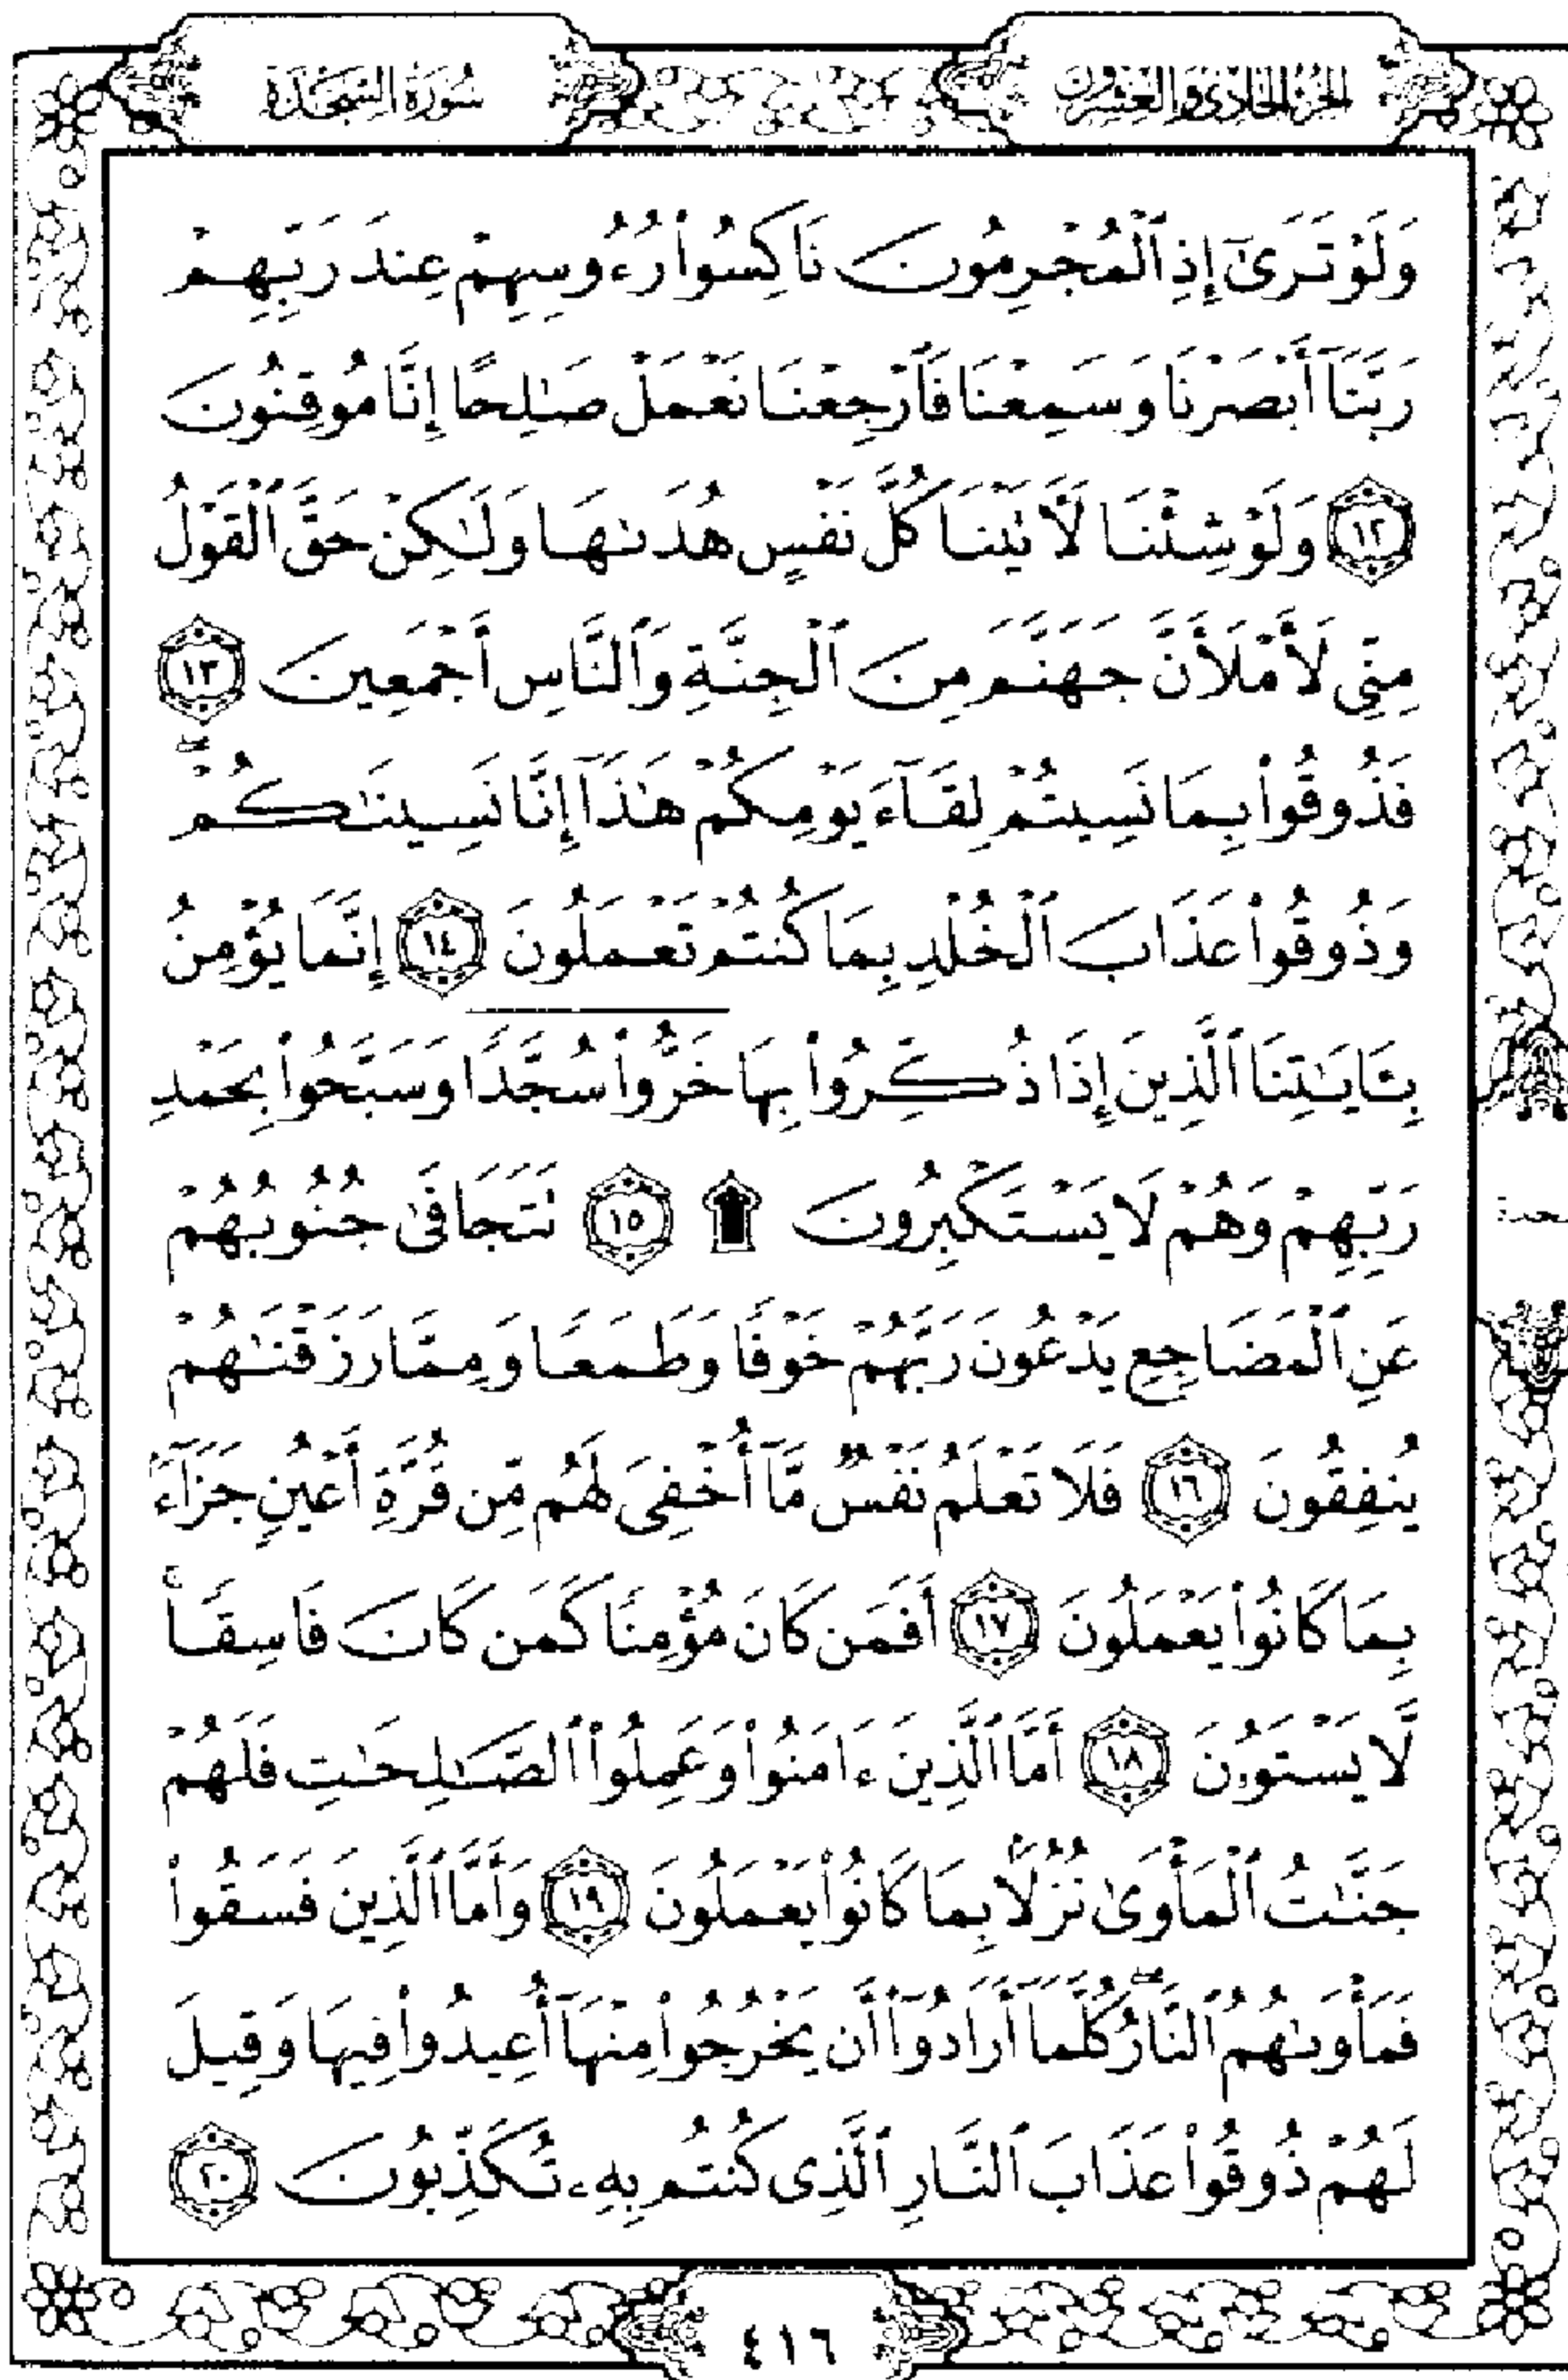 الجزء الحادي والعشرون
سورة السجدة
وَلَوْ تَرَىٰٓ إِذِ ٱلْمُجْرِمُونَ نَاكِسُوا۟ رُءُوسِهِمْ عِندَ رَبِّهِمْ
رَبَّنَآ أَبْصَرْنَا وَسَمِعْنَا فَٱرْجِعْنَا نَعْمَلْ صَـٰلِحًا إِنَّا مُوقِنُونَ
١٢ وَلَوْ شِئْنَا لَـَٔاتَيْنَا كُلَّ نَفْسٍ هُدَىٰهَا وَلَـٰكِنْ حَقَّ ٱلْقَوْلُ
مِنِّى لَأَمْلَأَنَّ جَهَنَّمَ مِنَ ٱلْجِنَّةِ وَٱلنَّاسِ أَجْمَعِينَ ١٣
فَذُوقُوا۟ بِمَا نَسِيتُمْ لِقَآءَ يَوْمِكُمْ هَـٰذَآ إِنَّا نَسِينَـٰكُمْ ۖ
وَذُوقُوا۟ عَذَابَ ٱلْخُلْدِ بِمَا كُنتُمْ تَعْمَلُونَ ١٤ إِنَّمَا يُؤْمِنُ
بِـَٔايَـٰتِنَا ٱلَّذِينَ إِذَا ذُكِّرُوا۟ بِهَا خَرُّوا۟ سُجَّدًا وَسَبَّحُوا۟ بِحَمْدِ
رَبِّهِمْ وَهُمْ لَا يَسْتَكْبِرُونَ ۩ ١٥ تَتَجَافَىٰ جُنُوبُهُمْ
عَنِ ٱلْمَضَاجِعِ يَدْعُونَ رَبَّهُمْ خَوْفًا وَطَمَعًا وَمِمَّا رَزَقْنَـٰهُمْ
يُنفِقُونَ ١٦ فَلَا تَعْلَمُ نَفْسٌ مَّآ أُخْفِىَ لَهُم مِّن قُرَّةِ أَعْيُنٍ جَزَآءًۢ
بِمَا كَانُوا۟ يَعْمَلُونَ ١٧ أَفَمَن كَانَ مُؤْمِنًا كَمَن كَانَ فَاسِقًا ۚ
لَّا يَسْتَوُۥنَ ١٨ أَمَّا ٱلَّذِينَ ءَامَنُوا۟ وَعَمِلُوا۟ ٱلصَّـٰلِحَـٰتِ فَلَهُمْ
جَنَّـٰتُ ٱلْمَأْوَىٰ نُزُلًۢا بِمَا كَانُوا۟ يَعْمَلُونَ ١٩ وَأَمَّا ٱلَّذِينَ فَسَقُوا۟
فَمَأْوَىٰهُمُ ٱلنَّارُ ۖ كُلَّمَآ أَرَادُوٓا۟ أَن يَخْرُجُوا۟ مِنْهَآ أُعِيدُوا۟ فِيهَا وَقِيلَ
لَهُمْ ذُوقُوا۟ عَذَابَ ٱلنَّارِ ٱلَّذِى كُنتُم بِهِۦ تُكَذِّبُونَ ٢٠
٤١٦